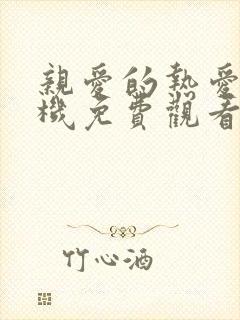 親愛的熱愛
機免費觀看
竹心酒